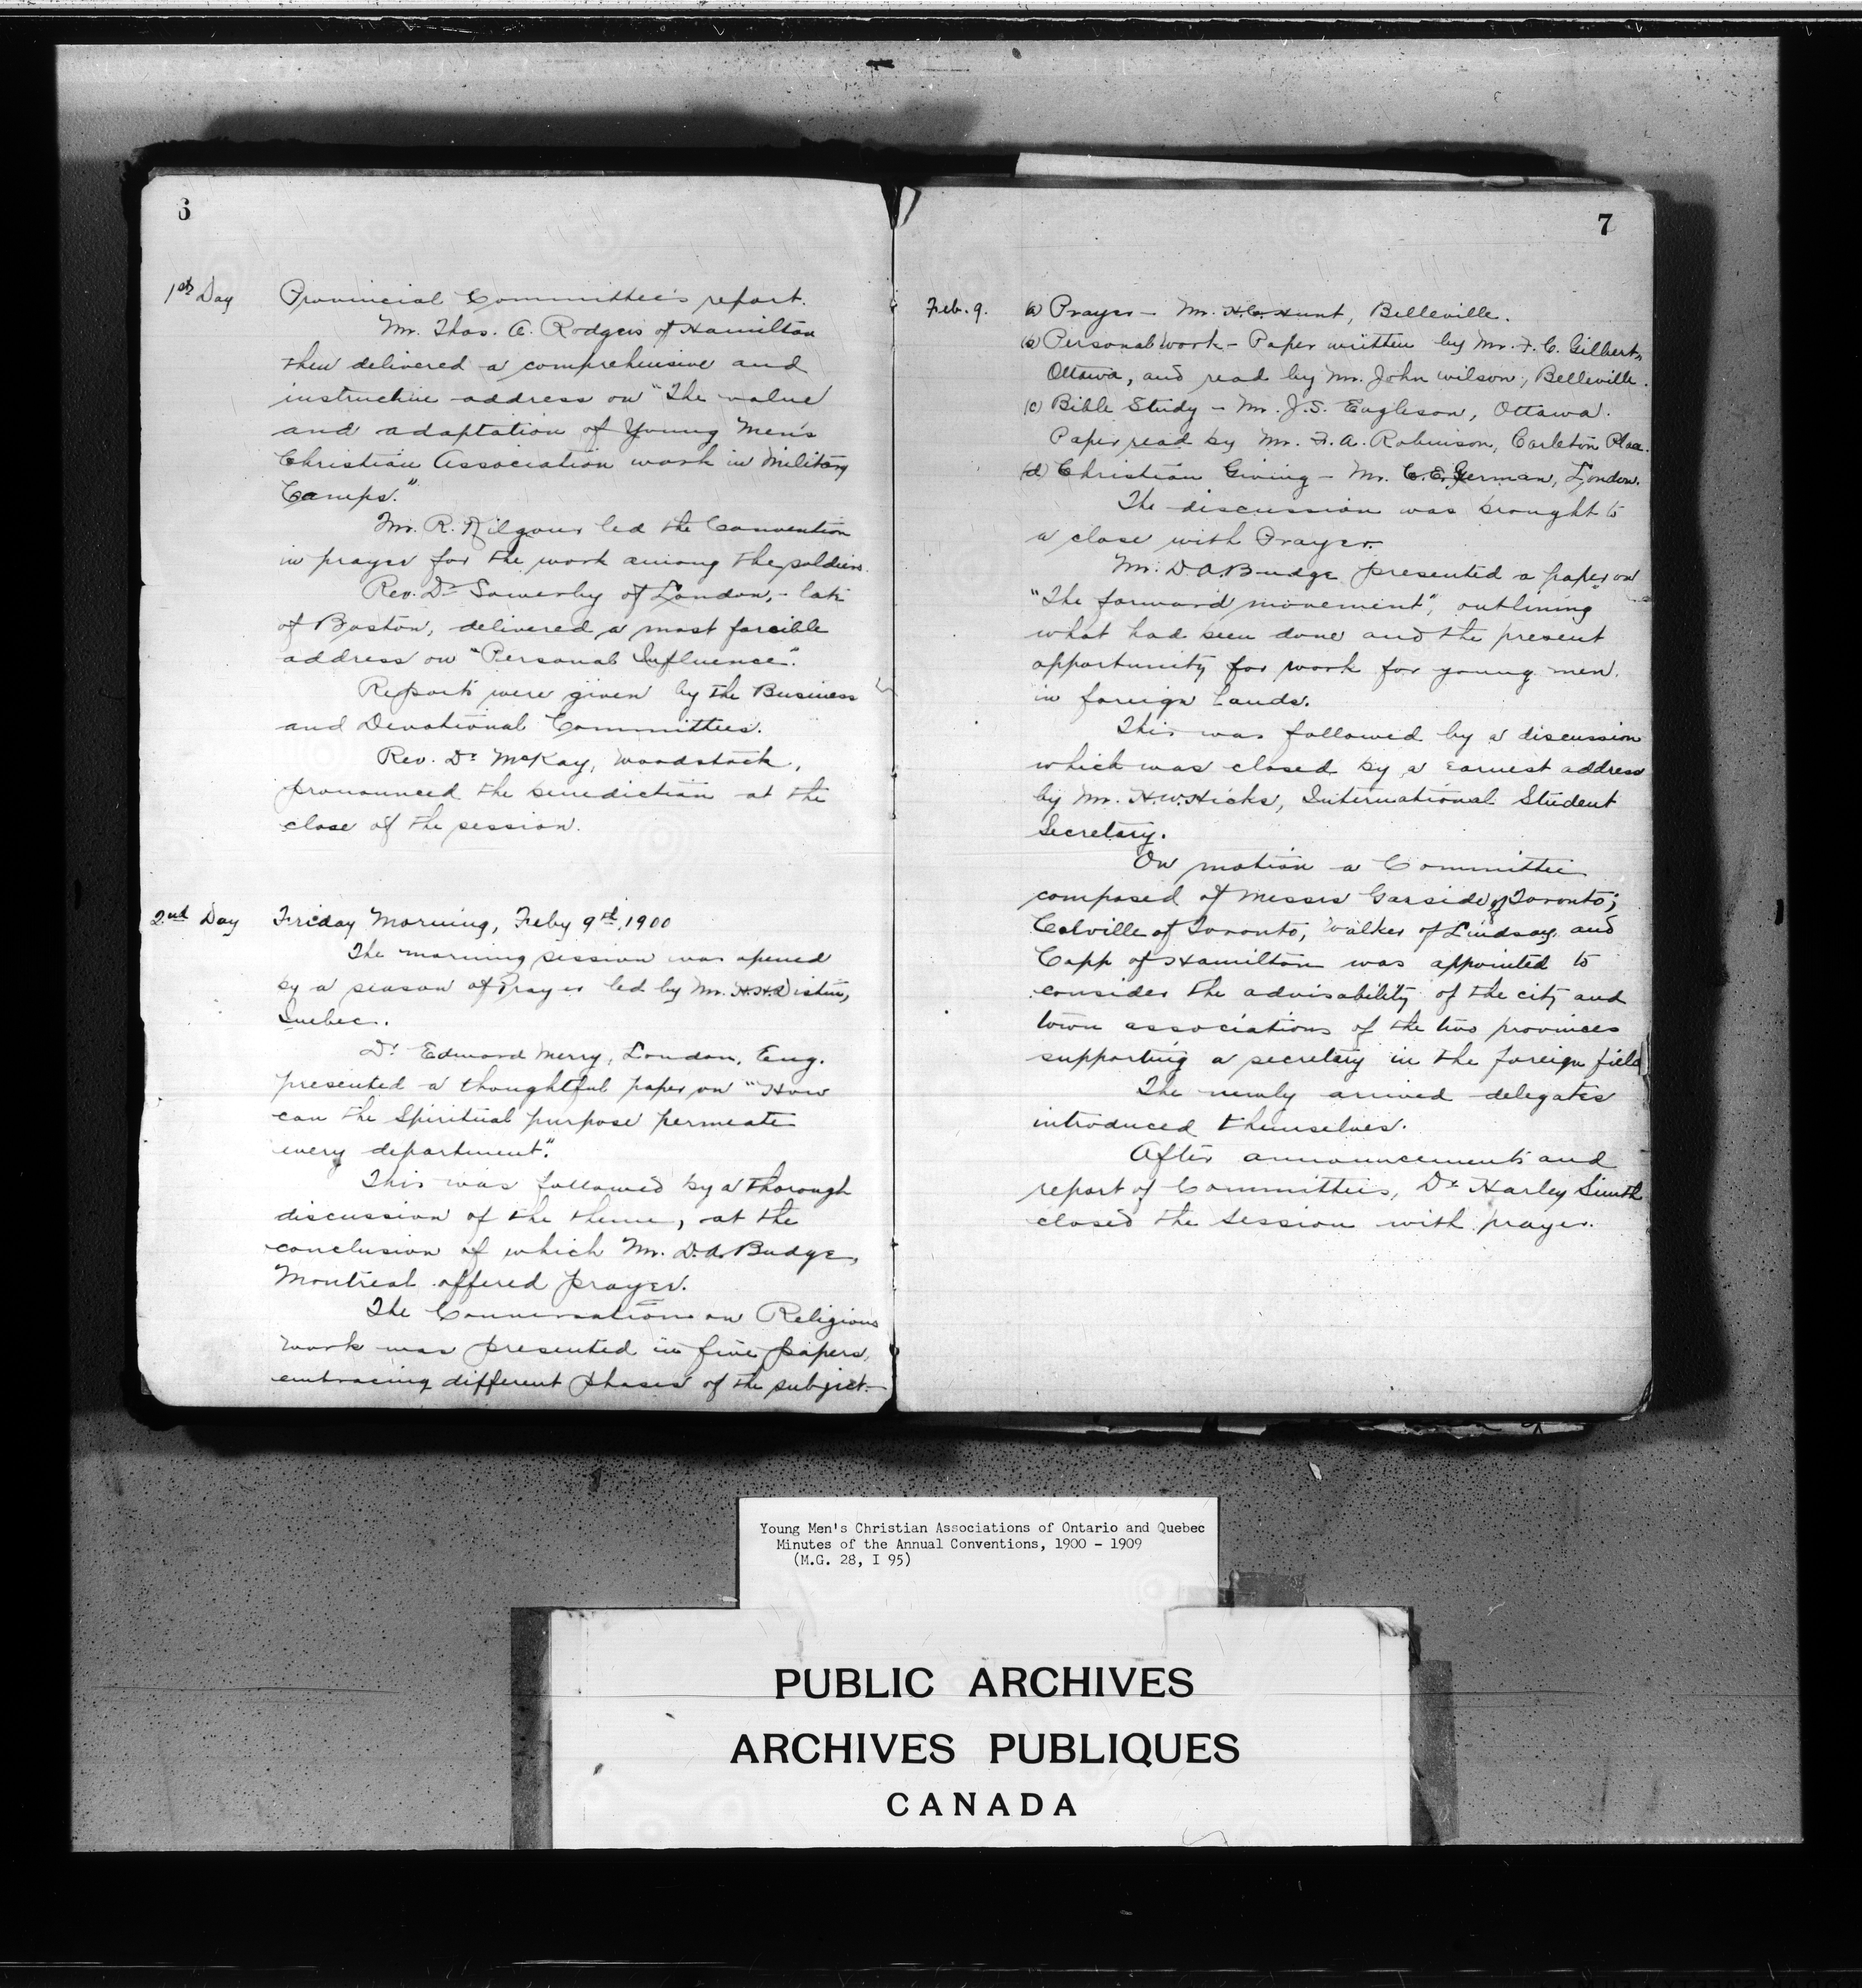 6
1st Day Provincial Committee's report.
Mr. Thos. A. Rodgers of Hamilton
then delivered a comprehensive and
instructive address on "The value
and adaptation of Young Men's
Christian Association work in Military
Camps."
Mr. R. Kilgour led the Convention
in prayer for the work among the soldiers.
Rev. Dr Sowerby of London, - late
of Boston, delivered a most forcible
address on "Personal Influence".
Reports were given by the Business
and Devotional Committees.
Rev. Dr McKay, Woodstock,
pronounced the benediction at the
close of the session.
2nd Day Friday Morning, Feby 9th, 1900
The morning session was opened
by a season of Prayer led by Mr. H.H.
Quebec.
Dr Edward Merry, London, Eng.
presented a thoughtful paper on "How
can the Spiritual purpose permeate
every department".
This was followed by a thorough
discussion of the theme, at the
conclusion of which Mr. D.A. Budge,
Montreal offered prayer.
The Conversation on Religious
work was presented in five papers,
embracing different phases of the subject.
7
Feb. 9. (a) Prayer - Mr. H.C. Hunt, Belleville.
(b) Personal work - Paper written by Mr. F. C. Gilbert,
Ottawa, and read by Mr. John Wilson, Belleville.
(c) Bible Study - Mr. J.S. Eagleson, Ottawa.
Paper read by Mr. F. A. Robinson, Carleton Place.
(d) Christian Giving - Mr. C.E. German, London.
The discussion was brought to
a close with Prayer.
Mr. D.A. Budge presented a paper on
"The forward movement", outlining
what had been done and the present
opportunity for work for young men
in foreign lands.
This was followed by a discussion
which was closed by a earnest address
by Mr. H.W. Hicks, International Student
Secretary.
On motion a Committee
composed of Messrs Garside of Toronto;
Colville of Toronto, Walker of Lindsay and
Capp of Hamilton was appointed to
consider the advisability of the city and
town associations of the two provinces
supporting a secretary in the foreign field
The newly arrived delegates
introduced themselves.
After announcements and
report of Committees, Dr Harley Smith
closed the session with prayer.
Young Men's Christian Associations of Ontario and Quebec
Minutes of the Annual Conventions, 1900 - 1909
(M.G. 28, I 95)
PUBLIC ARCHIVES
ARCHIVES PUBLIQUES
CANADA